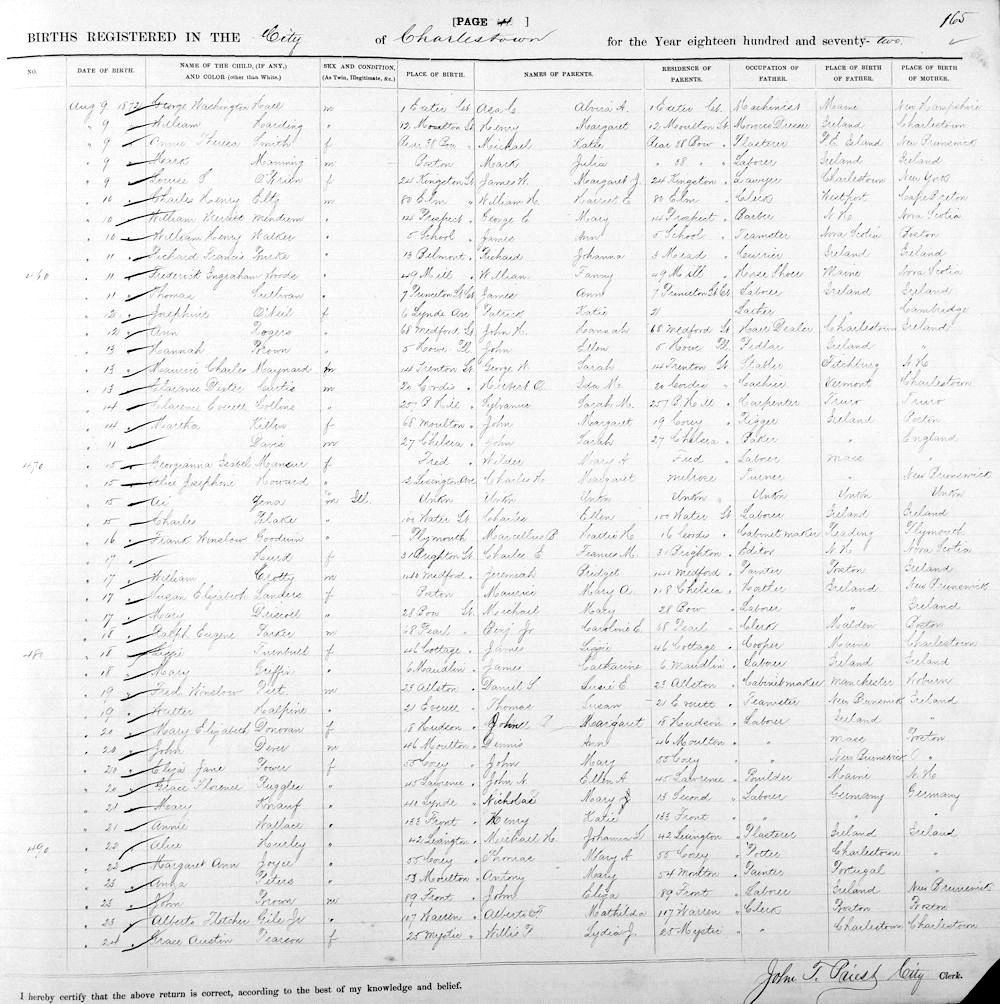 [PAGE 4 ] 165
BIRTHS REGISTERED IN THE City of Charlestown for the Year eighteen hundred and seventy-two.
NO. DATE OF BIRTH. NAME OF THE CHILD, (IF ANY,) AND COLOR (other than White.) SEX AND CONDITION, (As Twin, Illegitimate, &c.) PLACE OF BIRTH. NAMES OF PARENTS. RESIDENCE OF PARENTS. OCCUPATION OF FATHER. PLACE OF BIRTH OF FATHER. PLACE OF BIRTH OF MOTHER.
Aug 9 1872 George Washington Hall m 1 Exeter Ct. Asa C. Alvira A. 1 Exeter Ct. Machinist Maine New Hampshire
" 9 William Harding " 12 Moulton St Henry Margaret 12 Moulton St Morocco Dresser Ireland Charlestown
" 9 Annie Theresa Smith f Rear 38 Bow " Michael Katie Rear 38 Bow " Plasterer P.E. Island New Brunswick
" 9 Mark Manning m Boston Mark Julia " 38 " " Laborer Ireland Ireland
" 9 Louise S O'Brien f 24 Kingston St. James W. Margaret J. 24 Kingston " Lawyer Charlestown New York
" 10 Charles Henry m 80 Elm " William H. Harriet E. 80 Elm " Clerk Westport Cape Breton
" 10 William Herbert " 124 Prospect " George E. Mary 124 Prospect " Barber N.H. Nova Scotia
" 10 William Henry Walker " 5 School " James Ann 5 School " Teamster Nova Scotia Boston
" 11 Richard Francis Burke " 13 Belmont " Richard Johanna 3 Mead " Currier Ireland Ireland
460 " 11 Frederick Ingraham Woods " 49 Mill " William Fanny 49 Mill " Horse Shoer Maine Nova Scotia
" 11 Thomas Sullivan " 7 Princeton St Ct. James Ann 7 Princeton St Ct. Laborer Ireland Ireland
" 12 Josephine O'Neil f 6 Lynde Ave Patrick Katie 21 Lather Cambridge
" 12 Ann Rogers " 68 Medford St. John H. Hannah 68 Medford St Hair Dealer Charlestown Ireland
" 13 Hannah Brown " 5 Howe Pl. John Ellen 5 Howe Pl. Pedlar Ireland "
" 13 Maurice Charles Maynard m 14 Trenton St. George W. Sarah 14 Trenton St Stabler Fitchburg N.H
" 13 Clarence Dexter Curtis m 20 Cordis " Herbert O. Ida M. 20 Cordis " Cashier Vermont Charlestown
" 14 Clarence Everett Collins " 257 B. Hill " Sylvanus Sarah M. 257 B. Hill " Carpenter Truro Truro
" 14 Martha Killen f 68 Moulton " John Margaret 19 Corey " Rigger Ireland Boston
" 11 Davis m 27 Chelsea " John Sarah 27 Chelsea " Baker " England
470 " 15 Georgianna Isabel Mansur f Fred " Wilder Mary A Fred " Laborer Mass "
" 15 Alice Josephine Howard " 2 Lexington Ave Charles H. Margaret Melrose Turner " New Brunswick
" 15 m Ill. Unkn Unkn Unkn Unkn " Unkn Unkn Unkn
" 15 Charles Blake " 100 Water St. Charles Ellen 100 Water St. Laborer Ireland Ireland
" 16 Frank Winslow Goodwin " Plymouth Marcellus B. Hattie H. 16 Cordis " Cabinet maker Reading Plymouth
" 17 Hurd f 31 Brighton St. Charles E. Frances M. 31 Brighton " Editor N.H. Nova Scotia
" 17 William Crotty m 140 Medford " Jeremiah Bridget 140 Medford " Painter Boston Ireland
" 17 Susan Elizabeth Landers f Boston Maurice Mary A. 218 Chelsea " Hatter Ireland New Brunswick
" 17 Mary Driscoll " 28 Bow St. Michael Mary 28 Bow " Laborer " Ireland
" 18 Ralph Eugene Parker m 38 Pearl " Benj. Jr. Caroline E. 38 Pearl " Clerk Malden Boston
480 " 18 Lizzie Turnbull f 46 Cottage " James Lizzie 46 Cottage " Cooper Maine Charlestown
" 18 Mary Griffin " 6 Maudlin " James Catharine 6 Maudlin " Laborer Ireland Ireland
" 19 Fred. Winslow Peet m 23 Allston " Daniel S. Susie E. 23 Allston " Cabinet maker Manchester Woburn
" 19 Walter Halpine " 21 Everett " Thomas Susan 21 Everett " Teamster New Brunswick Ireland
" 20 Mary Elizabeth Donovan f 18 Hudson " John Margaret 18 Hudson " Laborer Ireland "
" 20 John Dever m 46 Moulton " Dennis Ann 46 Moulton " " Mass Boston
" 20 Eliza Jane Power f 55 Corey " John Mary 55 Corey " " New Brunswick "
" 20 Grace Florence Ruggles " 45 Lawrence " John N. Ellen A 45 Lawrence " Moulder Maine N.H.
" 21 Mary Knauf " 40 Lynde " Nicholas Mary J. 13 Second " Laborer Germany Germany
" 21 Annie Wallace " 133 Front " Henry Katie 133 Front " " " "
490 " 22 Alice Hurley " 42 Lexington " Michael H. Johanna L. 42 Lexington " Plasterer Ireland Ireland
" 22 Margaret Ann Joyce " 55 Corey " Thomas Mary A 55 Corey " Potter Charlestown "
" 23 Anna Peters " 53 Moulton " Antony Mary 54 Moulton " Painter Portugal "
" 23 John Brown m 89 Front " John Eliza 89 Front " Laborer Ireland New Brunswick
" 23 Alberto Fletcher Gile Jr. " 107 Warren " Alberto F. Mathilda 107 Warren " Clerk Boston Boston
" 24 Grace Austin Pearson f 25 Mystic " Willis F. Lydia J. 25 Mystic " " Charlestown Charlestown
John T. Priest City Clerk.
I hereby certify that the above return is correct, according to the best of my knowledge and belief.